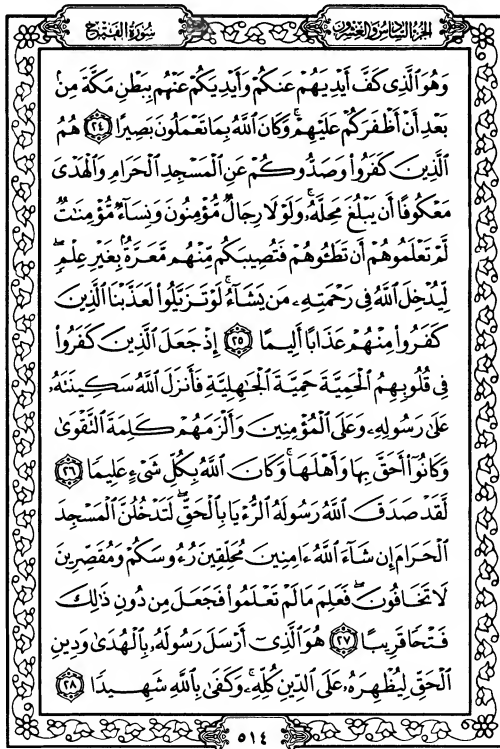 الجزء السادس والعشرون
سورة الفتح
وَهُوَ ٱلَّذِى كَفَّ أَيْدِيَهُمْ عَنكُمْ وَأَيْدِيَكُمْ عَنْهُم بِبَطْنِ مَكَّةَ مِنۢ
بَعْدِ أَنْ أَظْفَرَكُمْ عَلَيْهِمْ ۚ وَكَانَ ٱللَّهُ بِمَا تَعْمَلُونَ بَصِيرًا ﴿٢٤﴾ هُمُ
ٱلَّذِينَ كَفَرُوا۟ وَصَدُّوكُمْ عَنِ ٱلْمَسْجِدِ ٱلْحَرَامِ وَٱلْهَدْىَ
مَعْكُوفًا أَن يَبْلُغَ مَحِلَّهُۥ ۚ وَلَوْلَا رِجَالٌ مُّؤْمِنُونَ وَنِسَآءٌ مُّؤْمِنَٰتٌ
لَّمْ تَعْلَمُوهُمْ أَن تَطَـُٔوهُمْ فَتُصِيبَكُم مِّنْهُم مَّعَرَّةٌۢ بِغَيْرِ عِلْمٍ ۖ
لِّيُدْخِلَ ٱللَّهُ فِى رَحْمَتِهِۦ مَن يَشَآءُ ۚ لَوْ تَزَيَّلُوا۟ لَعَذَّبْنَا ٱلَّذِينَ
كَفَرُوا۟ مِنْهُمْ عَذَابًا أَلِيمًا ﴿٢٥﴾ إِذْ جَعَلَ ٱلَّذِينَ كَفَرُوا۟
فِى قُلُوبِهِمُ ٱلْحَمِيَّةَ حَمِيَّةَ ٱلْجَٰهِلِيَّةِ فَأَنزَلَ ٱللَّهُ سَكِينَتَهُۥ
عَلَىٰ رَسُولِهِۦ وَعَلَى ٱلْمُؤْمِنِينَ وَأَلْزَمَهُمْ كَلِمَةَ ٱلتَّقْوَىٰ
وَكَانُوٓا۟ أَحَقَّ بِهَا وَأَهْلَهَا ۚ وَكَانَ ٱللَّهُ بِكُلِّ شَىْءٍ عَلِيمًا ﴿٢٦﴾
لَّقَدْ صَدَقَ ٱللَّهُ رَسُولَهُ ٱلرُّءْيَا بِٱلْحَقِّ ۖ لَتَدْخُلُنَّ ٱلْمَسْجِدَ
ٱلْحَرَامَ إِن شَآءَ ٱللَّهُ ءَامِنِينَ مُحَلِّقِينَ رُءُوسَكُمْ وَمُقَصِّرِينَ
لَا تَخَافُونَ ۖ فَعَلِمَ مَا لَمْ تَعْلَمُوا۟ فَجَعَلَ مِن دُونِ ذَٰلِكَ
فَتْحًا قَرِيبًا ﴿٢٧﴾ هُوَ ٱلَّذِىٓ أَرْسَلَ رَسُولَهُۥ بِٱلْهُدَىٰ وَدِينِ
ٱلْحَقِّ لِيُظْهِرَهُۥ عَلَى ٱلدِّينِ كُلِّهِۦ ۚ وَكَفَىٰ بِٱللَّهِ شَهِيدًا ﴿٢٨﴾
٥١٤